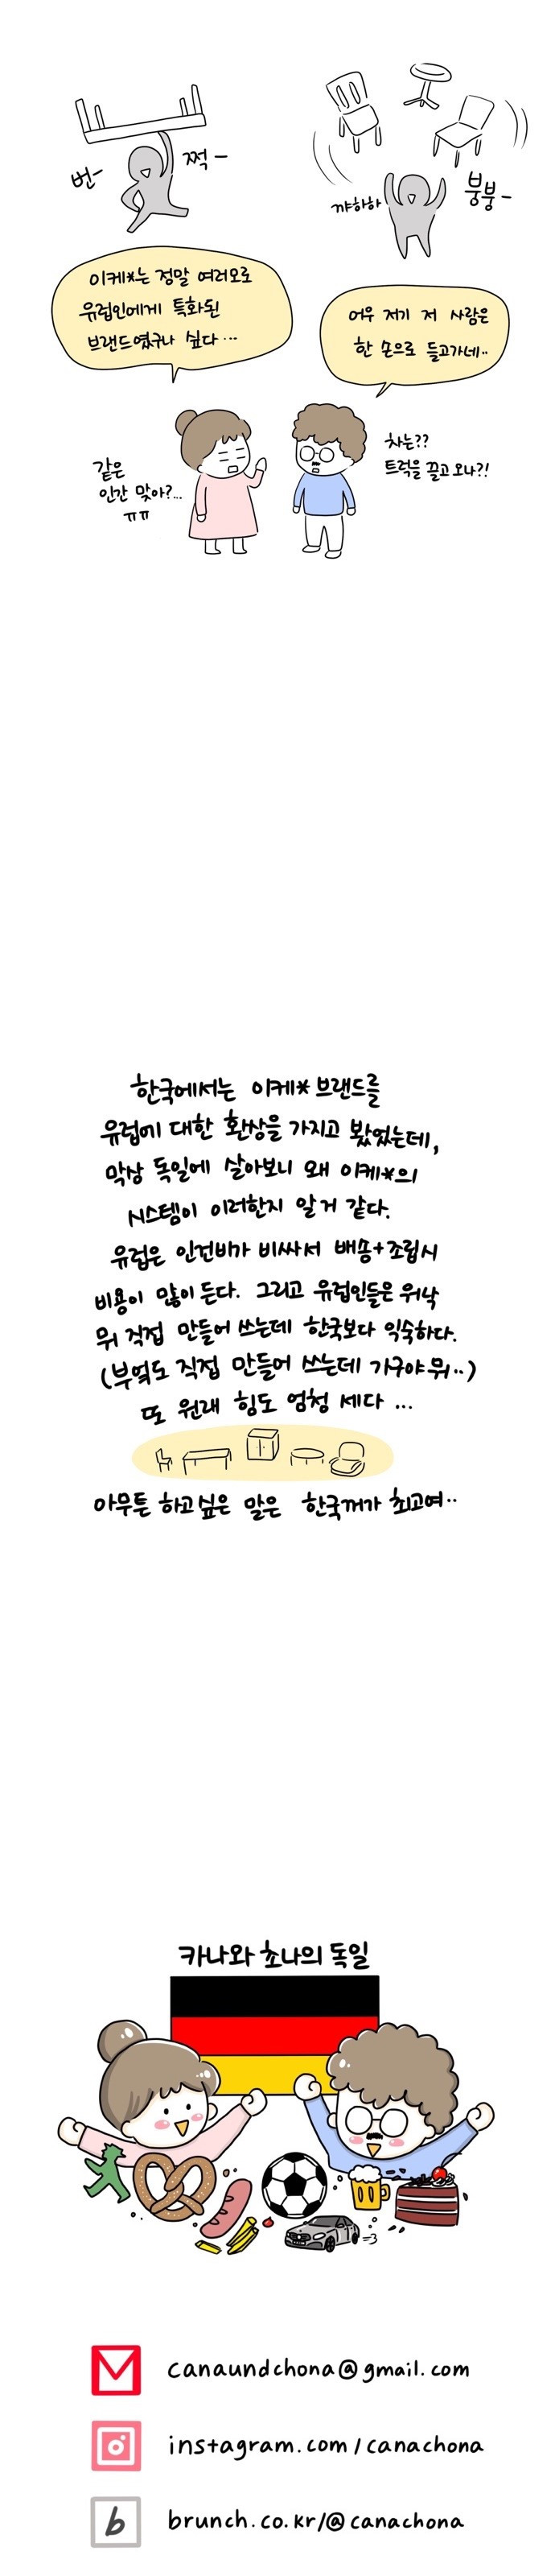 번-
쩍-
꺄하하
붕붕-
이케*는 정말 여러모로
유럽인에게 특화된
브랜드였구나 싶다...
어우 저기 저 사람은
한 손으로 들고가네..
같은
인간 맞아?...
ㅠㅠ
차는??
트럭을 끌고 오나?!
한국에서는 이케* 브랜드를
유럽에 대한 환상을 가지고 봤었는데,
막상 독일에 살아보니 왜 이케*의
시스템이 이러한지 알 거 같다.
유럽은 인건비가 비싸서 배송+조립시
비용이 많이 든다. 그리고 유럽인들은 워낙
뭐 직접 만들어 쓰는데 한국보다 익숙하다.
(부엌도 직접 만들어 쓰는데 가구야 뭐..)
또 원래 힘도 엄청 세다 ...
아무튼 하고싶은 말은 한국꺼가 최고여..
카나와 초나의 독일
canaundchona@gmail.com
instagram.com/canachona
b brunch.co.kr/@canachona